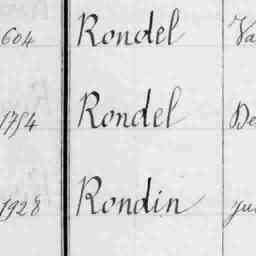 604 Rondel Va
1754 Rondel De
1928 Rondin